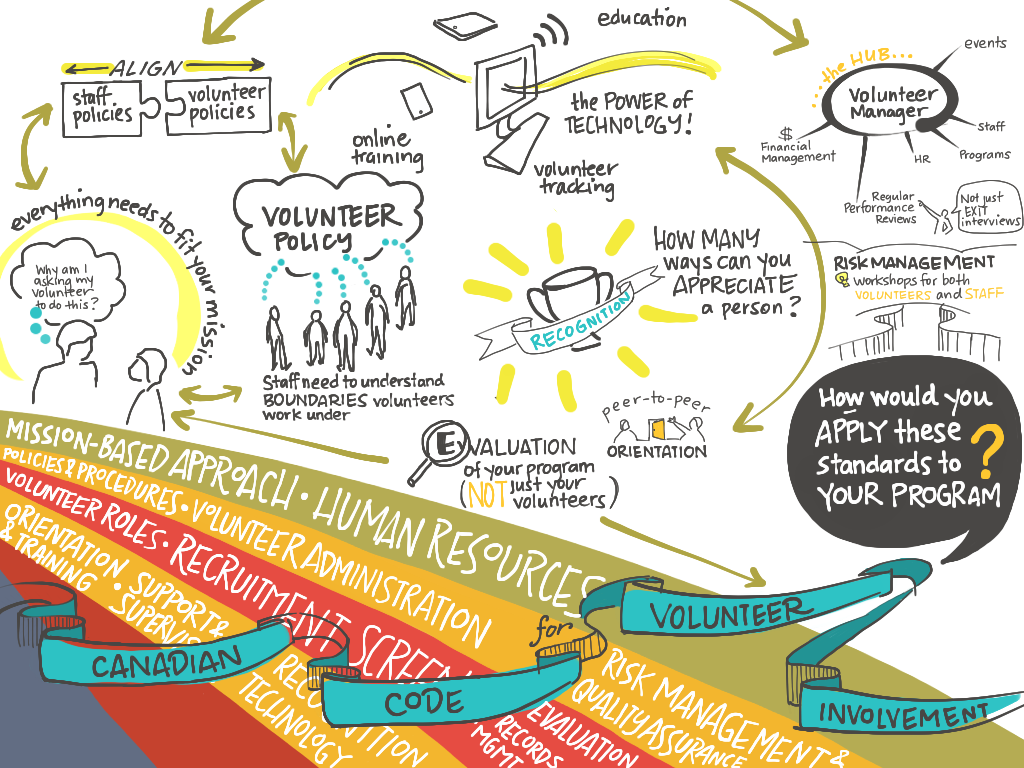 ALIGN
staff
policies
volunteer
policies
everything needs to fit your mission
Why am I
asking my
volunteer
to do this?
online
training
VOLUNTEER
POLICY
Staff need to understand
BOUNDARIES volunteers
work under
education
the POWER of
TECHNOLOGY!
volunteer
tracking
RECOGNITION
HOW MANY
ways can you
APPRECIATE
a person?
peer-to-peer
ORIENTATION
EVALUATION
of your program
(NOT just your
volunteers)
...the HUB...
Volunteer
Manager
events
Staff
Programs
HR
$
Financial
Management
Regular
Performance
Reviews
Not just
EXIT
interviews
RISK MANAGEMENT
workshops for both
VOLUNTEERS and STAFF
How would you
APPLY these
standards to
YOUR PROGRAM
?
MISSION-BASED APPROACH • HUMAN RESOURCES
POLICIES & PROCEDURES • VOLUNTEER ADMINISTRATION
RISK MANAGEMENT &
QUALITY ASSURANCE
VOLUNTEER ROLES • RECRUITMENT SCREEN
EVALUATION
RECORDS
MGMT
ORIENTATION
& TRAINING •
SUPPORT &
SUPERVIS
RECOGNITION
TECHNOLOGY
CANADIAN
CODE
for
VOLUNTEER
INVOLVEMENT